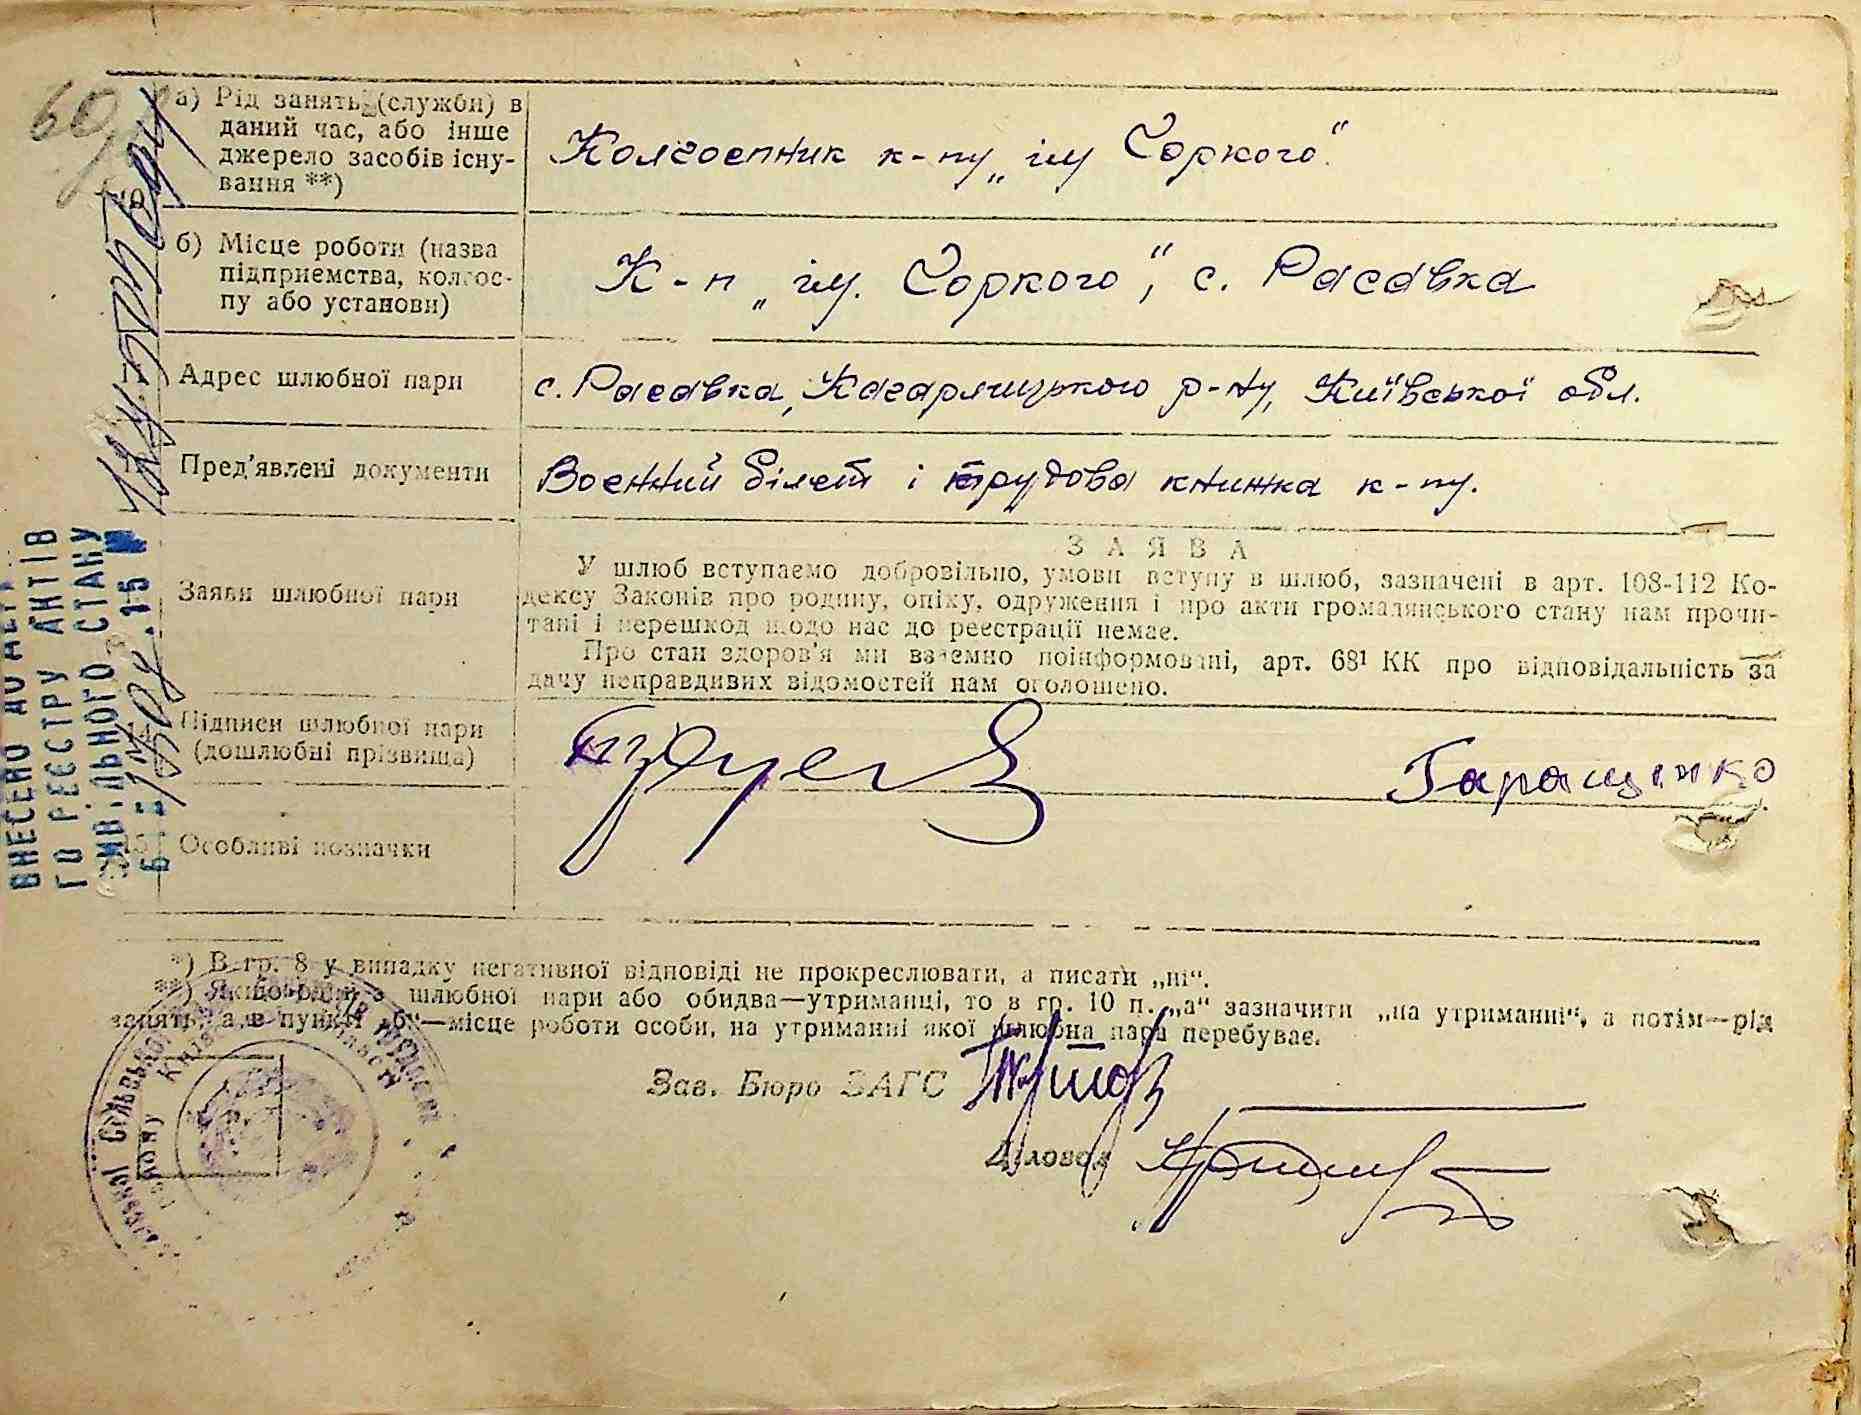 60
а) Рід занять (служби) в
даний час, або інше
джерело засобів існу-
вання **)
Колгоспник к-пу „ім Горкого"
б) Місце роботи (назва
підприємства, колгос-
пу або установи)
К-п „ім. Горкого", с. Расавка
Адрес шлюбної пари
с. Расавка, Кагарлицького р-ну, Київської обл.
Пред'явлені документи
Воєнний білет і трудова книжка к-пу.
Заяви шлюбної пари
ЗАЯВА
У шлюб вступаємо добровільно, умови вступу в шлюб, зазначені в арт. 108-112 Ко-
дексу Законів про родину, опіку, одруження і про акти громадянського стану нам прочи-
тані і перешкод щодо нас до реєстрації немає.
Про стан здоров'я ми взаємно поінформовані, арт. 68¹ КК про відповідальність за
дачу неправдивих відомостей нам оголошено.
Підписи шлюбної пари
(дошлюбні прізвища)
Гаращенко
15 Особливі позначки
ВНЕСЕНО ДО
ГО РЕЄСТРУ АКТІВ
ЦИВІЛЬНОГО СТАНУ
*) В гр. 8 у випадку негативної відповіді не прокреслювати, а писати „ні".
**) Якщо один з шлюбної пари або обидва—утриманці, то в гр. 10 п. „а" зазначити „на утриманні", а потім—рід
занять, а в пункті „б"—місце роботи особи, на утриманні якої шлюбна пара перебуває.
Зав. Бюро ЗАГС
Діловод